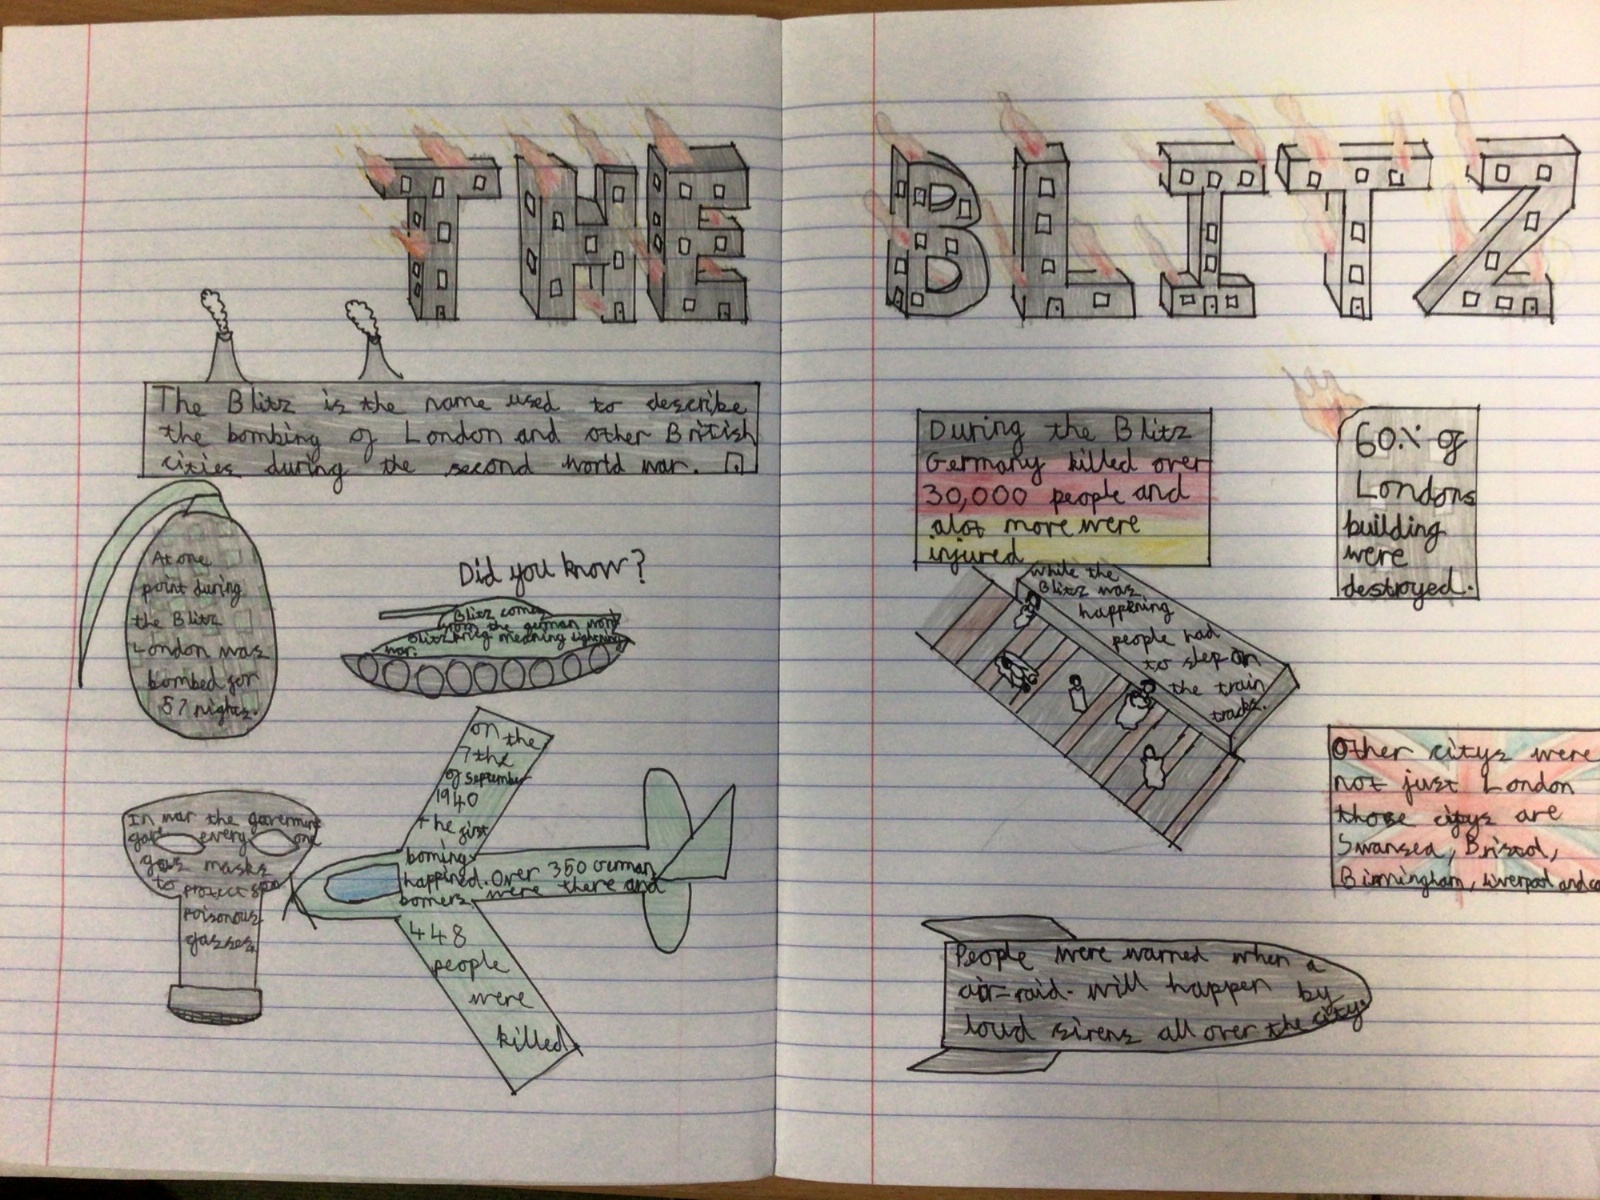 THE BLITZ
The Blitz is the name used to describe
the bombing of London and other British
cities during the second world war.
At one
point during
the Blitz
London was
bombed for
57 nights.
Did you know?
Blitz comes
from the german word
Blitzkrieg meaning lightning
war.
In war the goverment
gave every one
gas masks
to protect from
poisonous
gasses.
on the
7the
of september
1940
the first
boming
happined. Over 350 German
bomers were there and
448
people
were
killed
During the Blitz
Germany killed over
30,000 people and
alot more were
injured
60% of
Londons
building
were
destroyed.
while the
Blitz was
happening
people had
to sleep on
the train
tracks.
Other citys were
not just London
those citys are
Swansea, Bristol,
Birmingham, Liverpool and
People were warned when a
air-raid will happen by
loud sirens all over the city.